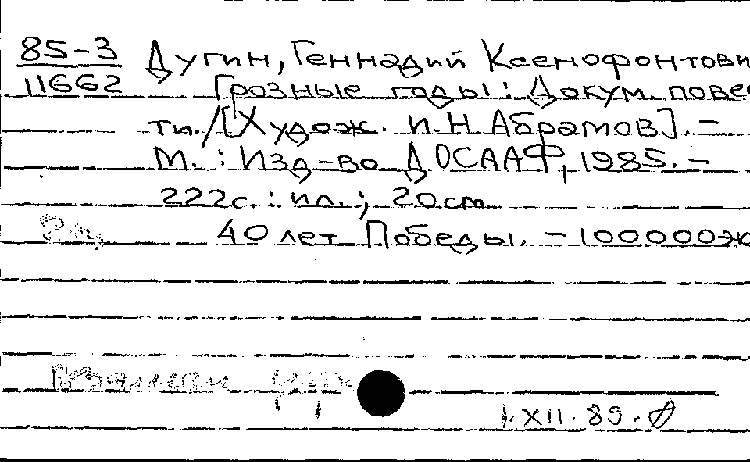 85-3 Дугин, Геннадий Ксенофонтови
11662 Грозные годы: Докум. пове
ти./[Худож. И.Н.Абрамов]. –
М. : Изд-во ДОСААФ, 1985. –
222с. : ил. ; 20см
40 лет Победы. – 100000э
1.XII.89.